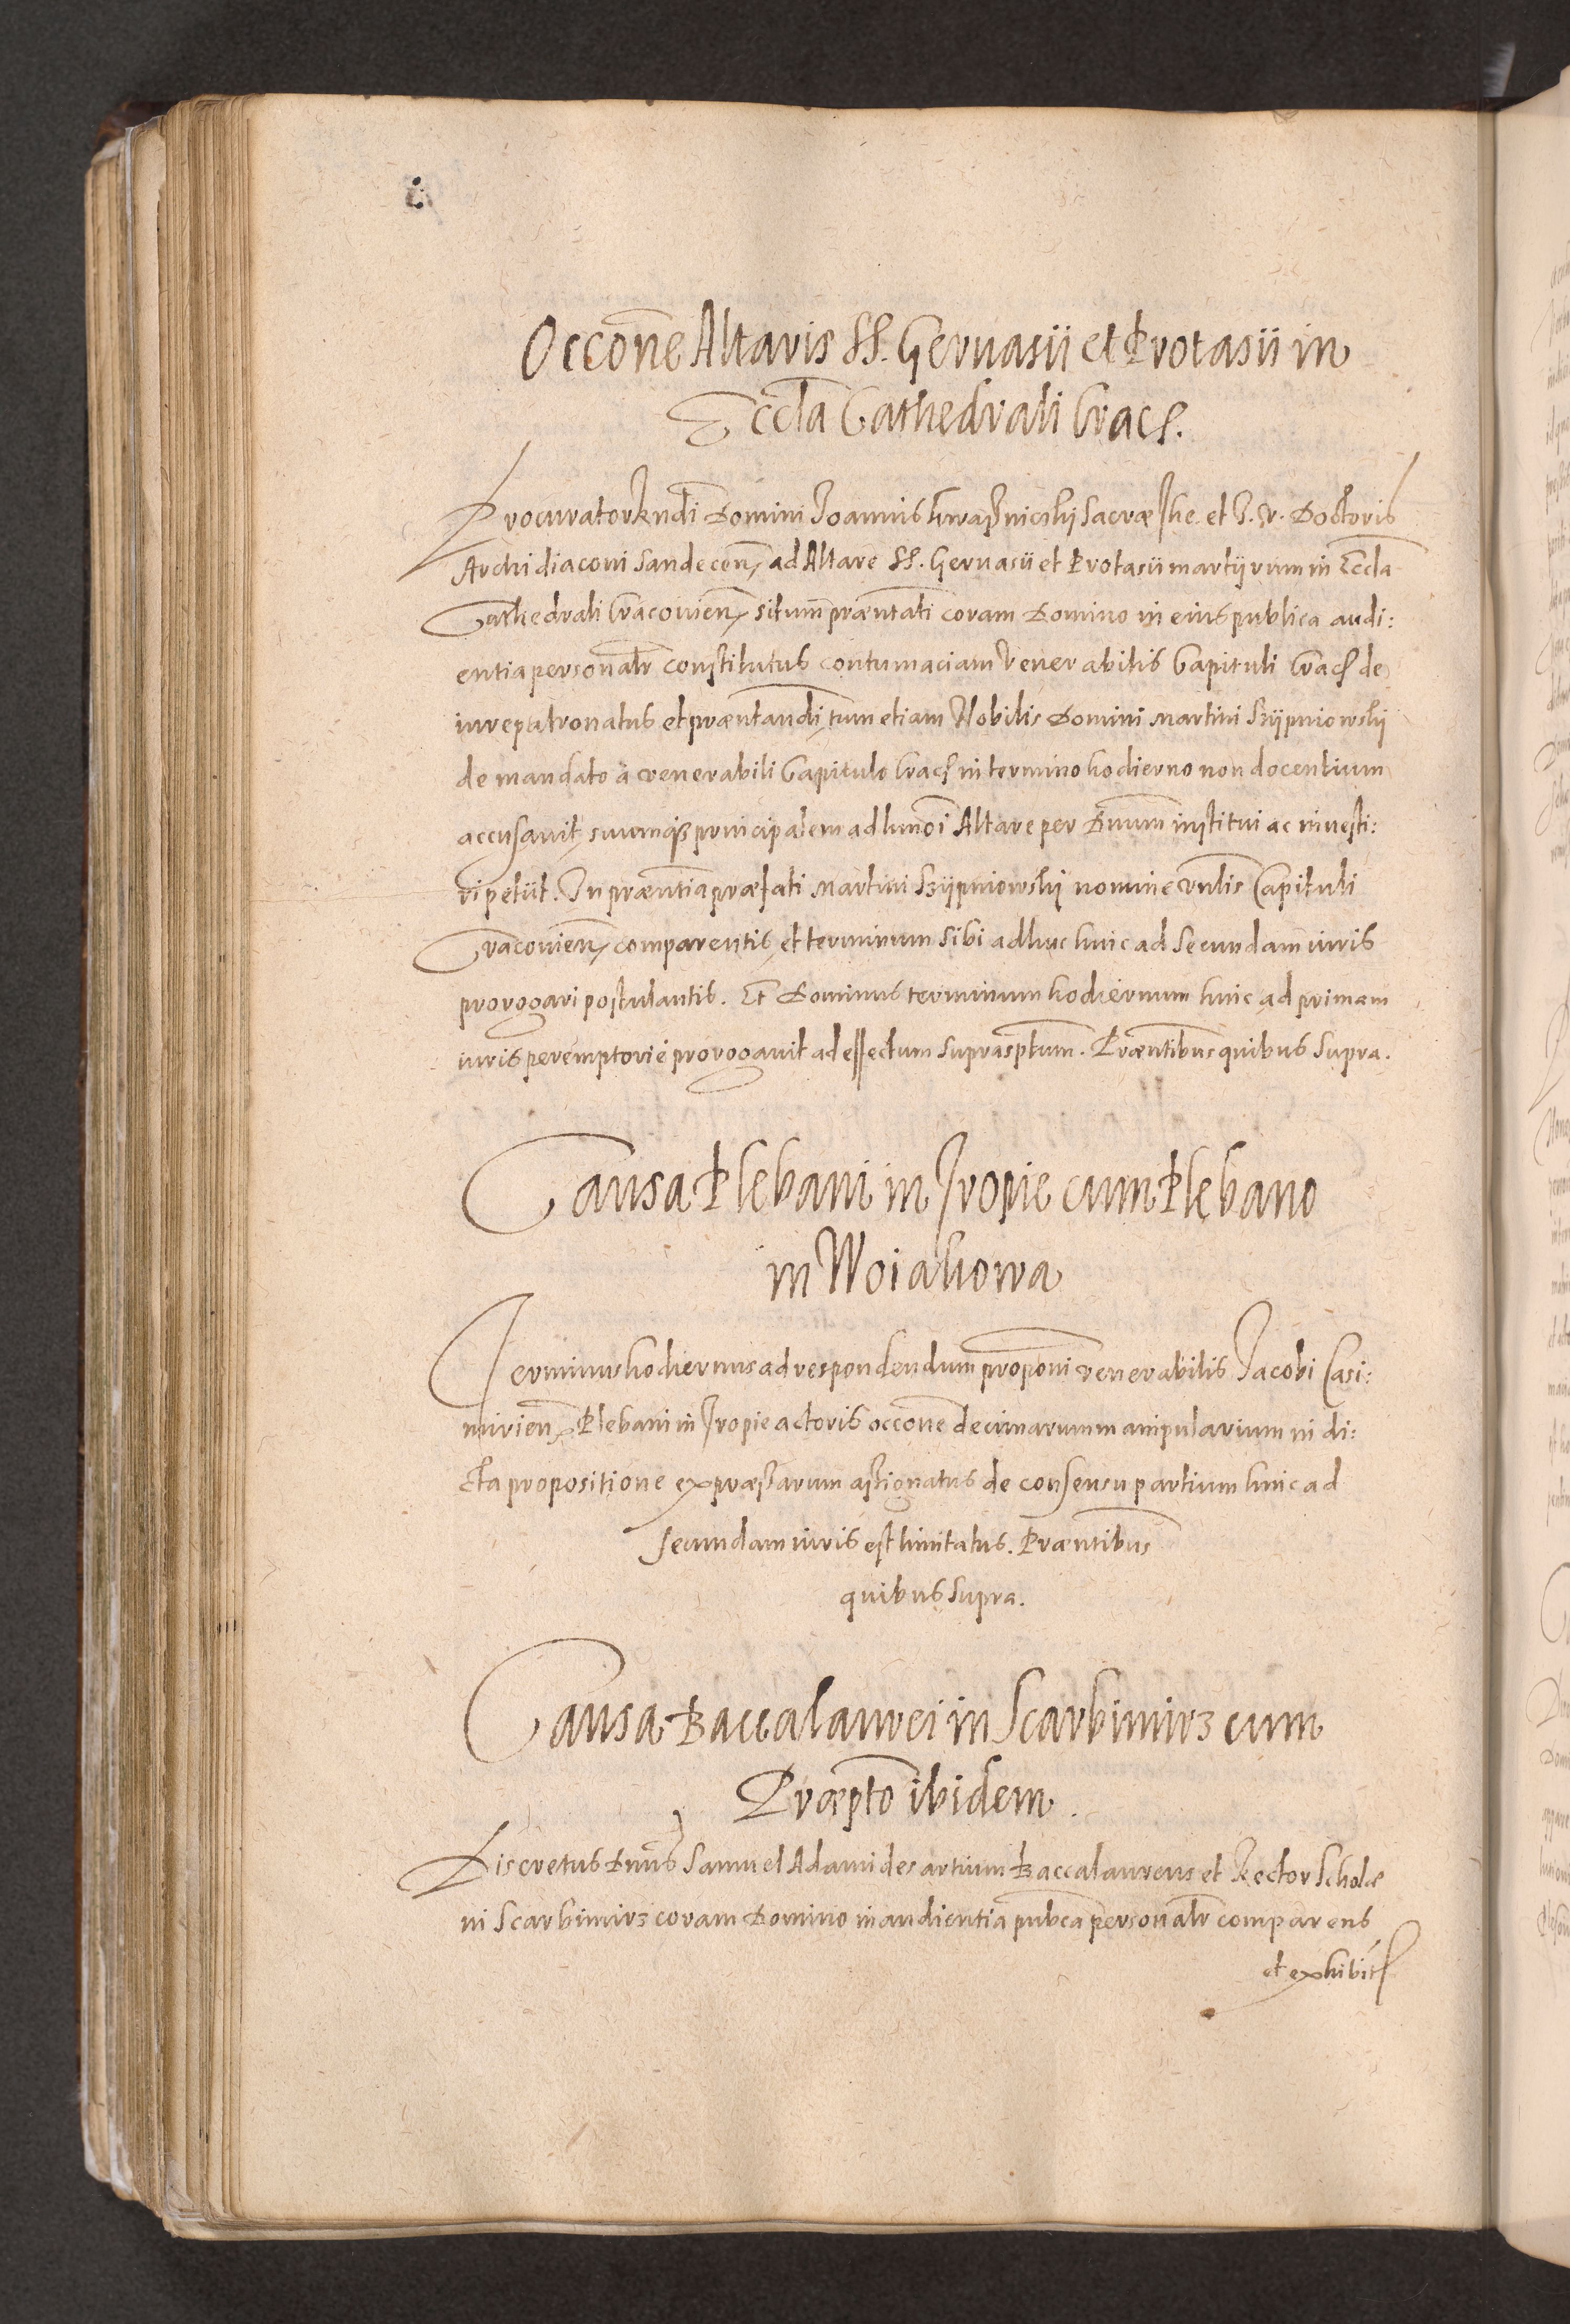 Occōne Altaris SS. Geruasii et Protasii in
Eccła Cathedrali Crac̃.
Procurator Rn̄di Domini Joannis Chrapnicskij Sacræ The. et I. V. Doctoris
Archidiaconi Sandecen̄, ad Altare SS. Geruasii et Protasii martijrum in Eccła
Cathedrali Cracouien̄, situm præntāti coram Domino in eius publica audi:
entia personalr̄ constitutus contumaciam Venerabilis Capituli Crac̃ de
iure patronatus et præntandi, tum etiam Nobilis Domini Martini Szijpniowskij
de mandato à venerabili Capitulo Crac̃ in termino hodierno non docentium
accusauit, suumq₃ principalem ad humōi Altare per Dnūm institui ac inuesti:
ri petiit. In præntia præfati Martini Szijpniowskij nomine Vnlis Capituli
Cracouien̄, comparentis, et terminum sibi adhuc hinc ad Secundam iuris
prorogari postulantis. Et Dominus terminum hodiernum hinc ad primam
iuris peremptoriè prorogauit ad effectum suprasptum. Præntibus quibus supra.
Causa Plebani in Tropie cum Plebano
in Woiakowa
Terminus hodiernus ad respondendum proponi venerabilis Jacobi Casi:
mirien̄, Plebani in Tropie actoris occōne decimarum manipularium in di:
cta propositione expræssarum assignatus de consensu partium hinc ad
secundam iuris est limitatus. Præntibus
quibus supra.
Causa Baccalaurei in Scarbimirz cum
Præpto ibidem.
Discretus Dnūs Samuel Adamides artium Baccalaureus et Rector Scholæ
in Scarbimirz coram Domino in audientia pubca personalr̄ comparens
et exhibit